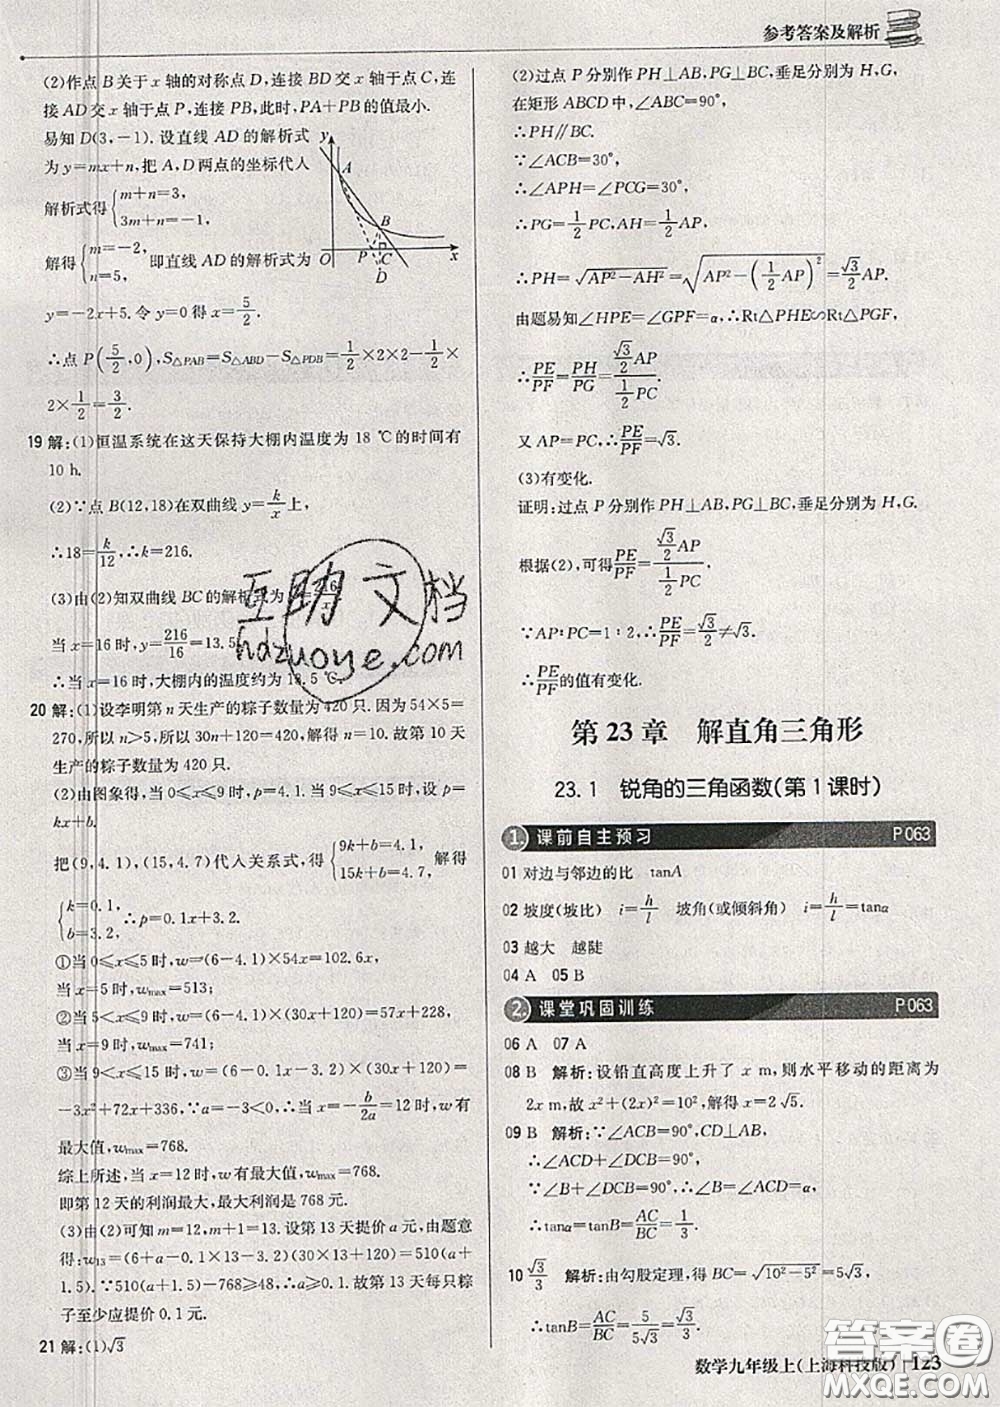 参考答案及解析
(2)作点 B 关于 x 轴的对称点 D,连接 BD 交 x 轴于点 C,连
接 AD 交 x 轴于点 P,连接 PB,此时,PA+PB 的值最小.
易知 D(3,-1).设直线 AD 的解析式
为 y=mx+n,把 A,D 两点的坐标代入
解析式得{m+n=3,
3m+n=-1,
解得{m=-2,
n=5, 即直线 AD 的解析式为
y A B O P C x D
y=-2x+5.令 y=0 得 x=5/2.
∴点 P(5/2,0),S△PAB=S△ABD-S△PDB=1/2×2×2-1/2×
2×1/2=3/2.
19 解:(1)恒温系统在这天保持大棚内温度为 18 ℃的时间有
10 h.
(2)∵点 B(12,18)在双曲线 y=k/x上,
∴18=k/12,∴k=216.
(3)由(2)知双曲线 BC 的解析式为 y=216/x.
当 x=16 时,y=216/16=13.5,
∴当 x=16 时,大棚内的温度约为 13.5 ℃.
20 解:(1)设李明第 n 天生产的粽子数量为 420 只.因为 54×5=
270,所以 n>5,所以 30n+120=420,解得 n=10.故第 10 天
生产的粽子数量为 420 只.
(2)由图象得,当 0≤x≤9 时,p=4.1;当 9≤x≤15 时,设 p=
kx+b.
把(9,4.1),(15,4.7)代入关系式,得{9k+b=4.1,
15k+b=4.7, 解得
{k=0.1,
b=3.2. ∴p=0.1x+3.2.
①当 0≤x≤5 时,w=(6-4.1)×54x=102.6x,
当 x=5 时,wmax=513;
②当 5<x≤9 时,w=(6-4.1)×(30x+120)=57x+228,
当 x=9 时,wmax=741;
③当 9<x≤15 时,w=(6-0.1x-3.2)×(30x+120)=
-3x²+72x+336,∵a=-3<0,∴当 x=-b/2a=12 时,w 有
最大值,wmax=768.
综上所述,当 x=12 时,w 有最大值,wmax=768.
即第 12 天的利润最大,最大利润是 768 元.
(3)由(2)可知 m=12,m+1=13.设第 13 天提价 a 元,由题意
得:w13=(6+a-0.1×13-3.2)(30×13+120)=510(a+
1.5).∵510(a+1.5)-768≥48,∴a≥0.1.故第 13 天每只粽
子至少应提价 0.1 元.
21 解:(1)√3
(2)过点 P 分别作 PH⊥AB,PG⊥BC,垂足分别为 H,G,
在矩形 ABCD 中,∠ABC=90°,
∴PH∥BC.
∵∠ACB=30°,
∴∠APH=∠PCG=30°,
∴PG=1/2PC,AH=1/2AP,
∴PH=√(AP²-AH²)=√(AP²-(1/2AP)²)=√3/2AP.
由题易知∠HPE=∠GPF=α,∴Rt△PHE∽Rt△PGF,
∴PE/PF=PH/PG=(√3/2AP)/(1/2PC).
又 AP=PC,∴PE/PF=√3.
(3)有变化.
证明:过点 P 分别作 PH⊥AB,PG⊥BC,垂足分别为 H、G.
根据(2),可得PE/PF=(√3/2AP)/(1/2PC).
∵AP∶PC=1∶2,∴PE/PF=√3/2≠√3.
∴PE/PF的值有变化.
第 23 章 解直角三角形
23.1 锐角的三角函数(第 1 课时)
1. 课前自主预习 P063
01 对边与邻边的比 tanA
02 坡度(坡比) i=h/l 坡角(或倾斜角) i=h/l=tanα
03 越大 越陡
04 A 05 B
2. 课堂巩固训练 P063
06 A 07 A
08 B 解析:设铅直高度上升了 x m,则水平移动的距离为
2x m,故 x²+(2x)²=10²,解得 x=2√5.
09 B 解析:∵∠ACB=90°,CD⊥AB,
∴∠ACD+∠DCB=90°.
∵∠B+∠DCB=90°,∴∠B=∠ACD=α,
∴tanα=tanB=AC/BC=1/3.
10 √3/3 解析:由勾股定理,得 BC=√(10²-5²)=5√3,
∴tanB=AC/BC=5/5√3=√3/3.
数学九年级上(上海科技版) 123
互助文档
hdzuoye.com
答案圈
MXQE.COM